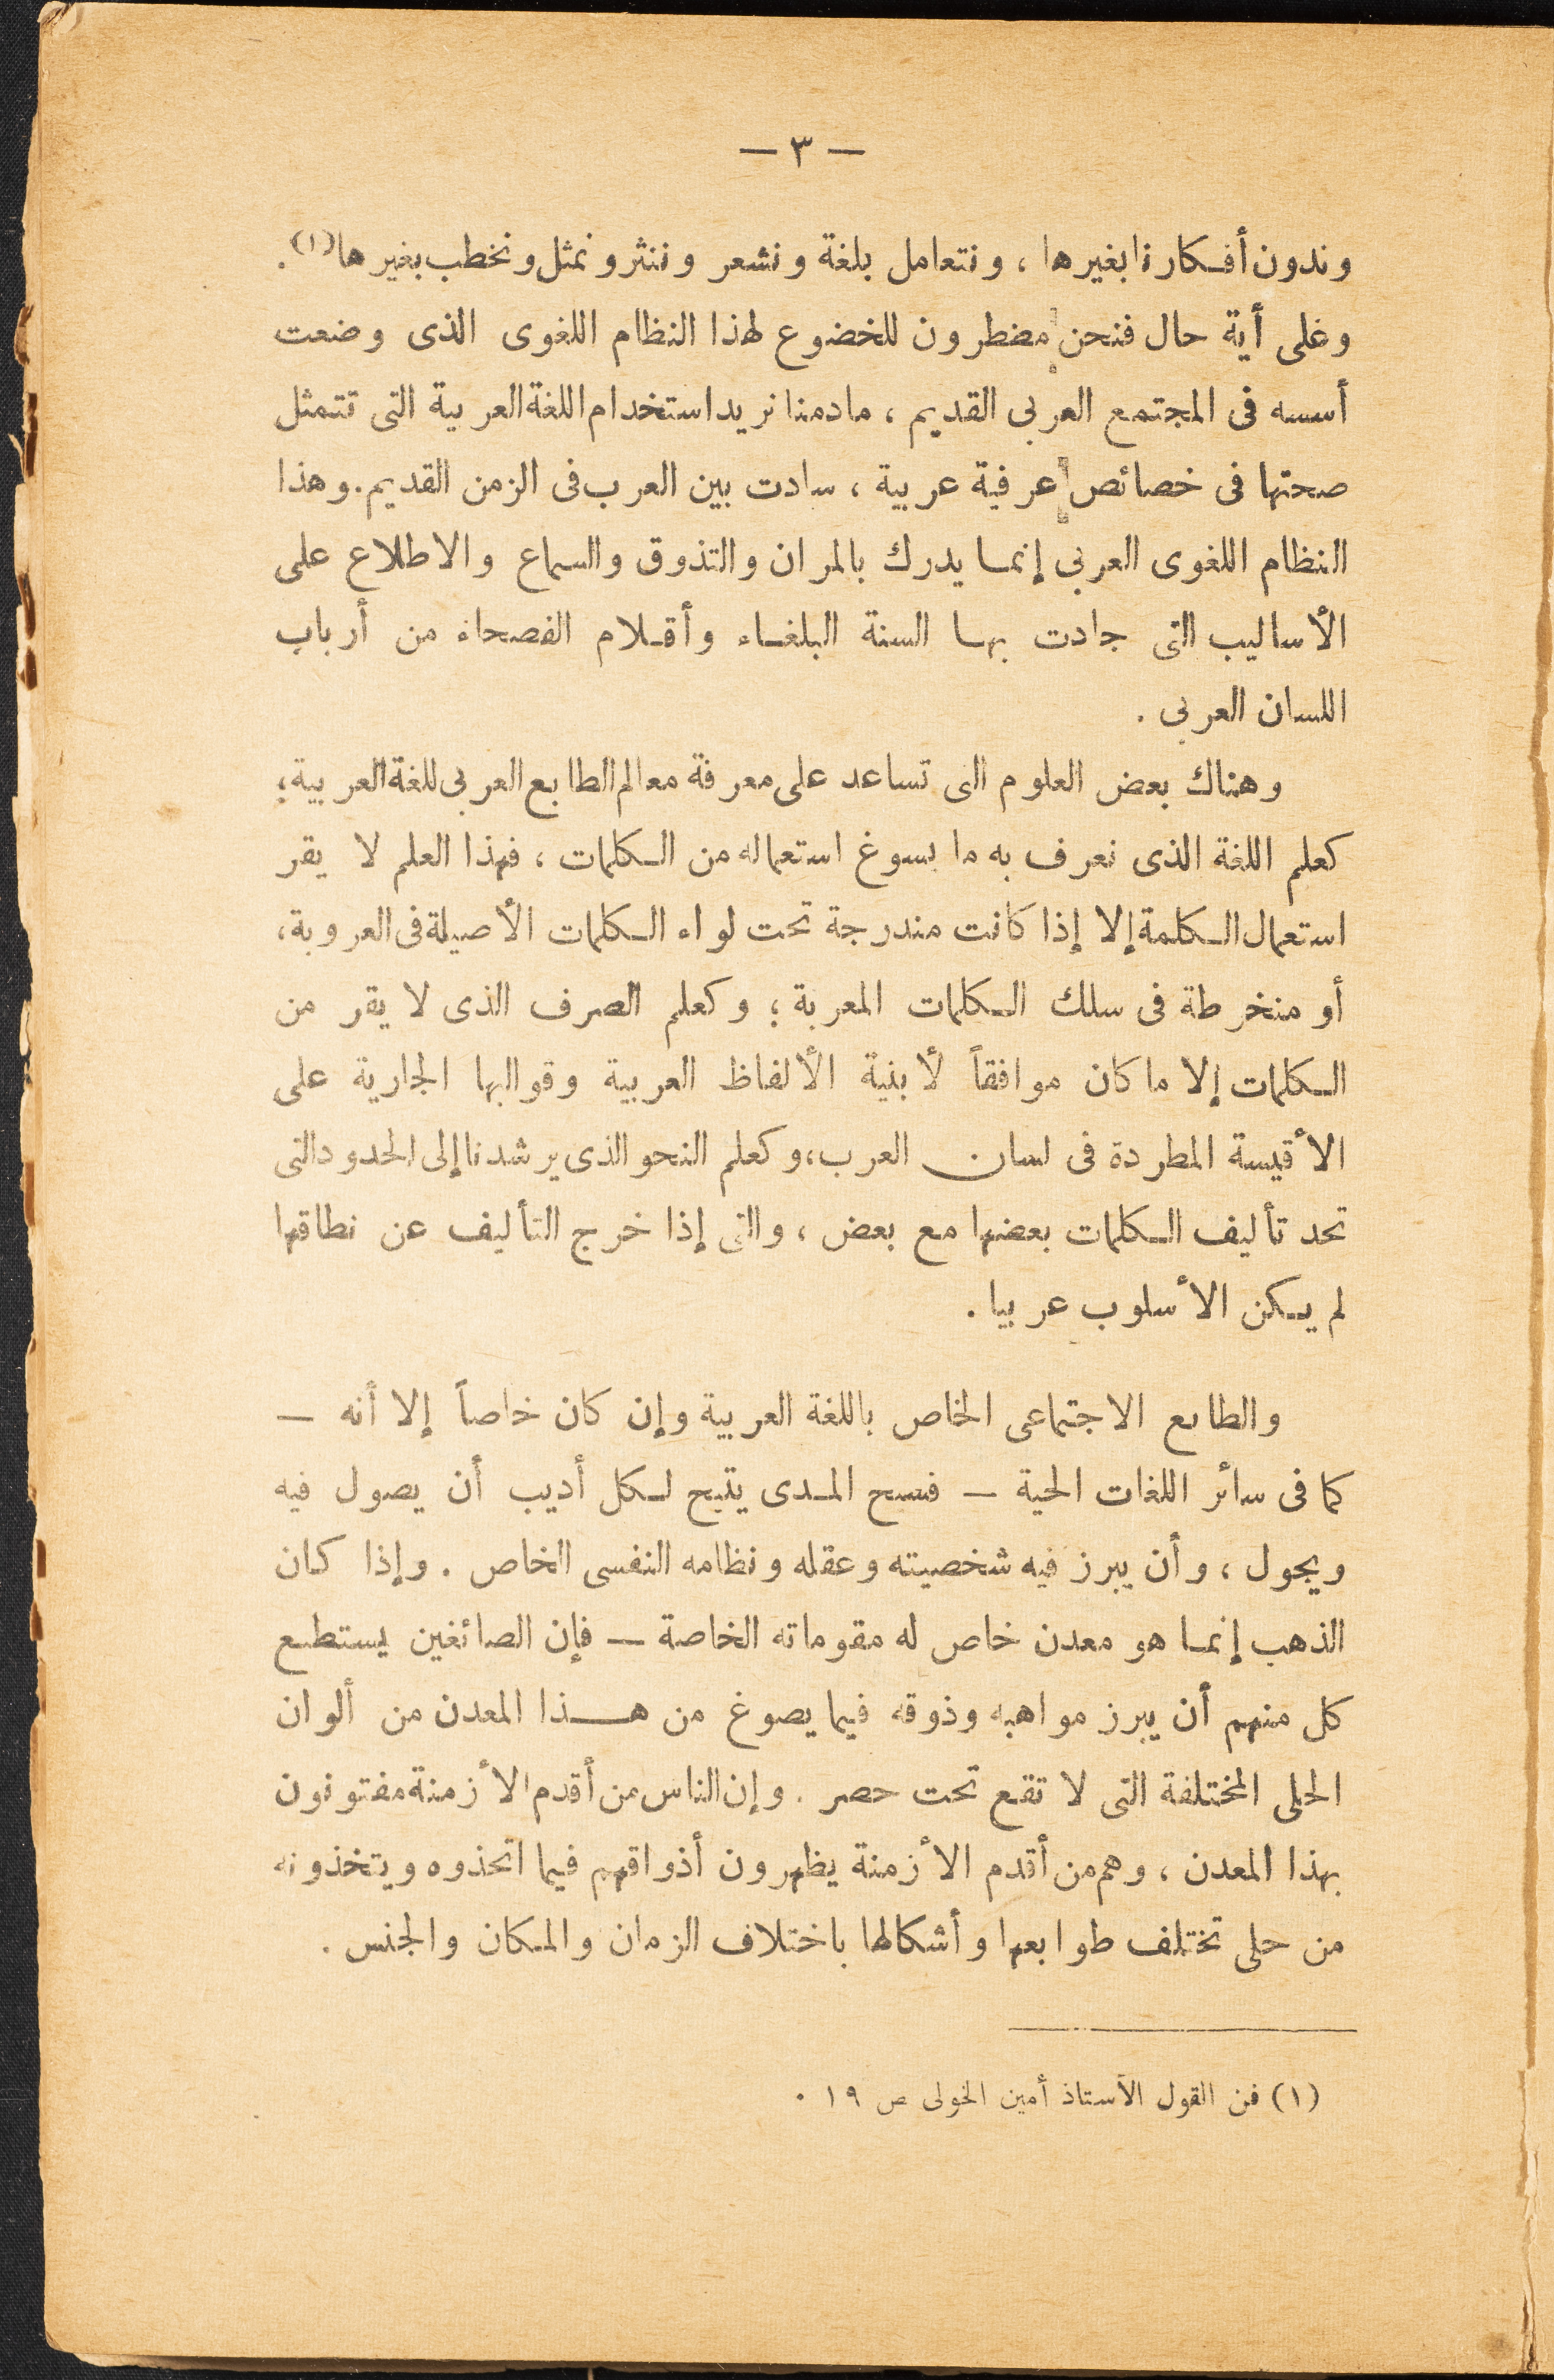 — ٣ —
وندون أفكارنا بغيرها ، ونتعامل بلغة ونشعر وننثر ونمثل ونخطب بغيرها(١).
وعلى أية حال فنحن مضطرون للخضوع لهذا النظام اللغوى الذى وضعت
أسسه فى المجتمع العربى القديم ، مادمنا نريد استخدام اللغة العربية التى تتمثل
صحتها فى خصائص عرفية عربية ، سادت بين العرب فى الزمن القديم. وهذا
النظام اللغوى العربى إنما يدرك بالمران والتذوق والسماع والاطلاع على
الأساليب التى جادت بها السنة البلغاء وأقلام الفصحاء من أرباب
اللسان العربى .
وهناك بعض العلوم التى تساعد على معرفة معالم الطابع العربى للغة العربية ؛
كعلم اللغة الذى نعرف به ما يسوغ استعماله من الكلمات ، فهذا العلم لا يقر
استعمال الكلمة إلا إذا كانت مندرجة تحت لواء الكلمات الأصيلة فى العروبة ،
أو منخرطة فى سلك الكلمات المعربة ؛ وكعلم الصرف الذى لا يقر من
الكلمات إلا ما كان موافقاً لأبنية الألفاظ العربية وقوالبها الجارية على
الأقيسة المطردة فى لسان العرب ، وكعلم النحو الذى يرشدنا إلى الحدود التى
تحد تأليف الكلمات بعضها مع بعض ، والتى إذا خرج التأليف عن نطاقها
لم يكن الأسلوب عربيا .
والطابع الاجتماعى الخاص باللغة العربية وإن كان خاصاً إلا أنه —
كما فى سائر اللغات الحية — فسيح المدى يتيح لكل أديب أن يصول فيه
ويجول ، وأن يبرز فيه شخصيته وعقله ونظامه النفسى الخاص . وإذا كان
الذهب إنما هو معدن خاص له مقوماته الخاصة — فإن الصائغين يستطيع
كل منهم أن يبرز مواهبه وذوقه فيما يصوغ من هذا المعدن من ألوان
الحلى المختلفة التى لا تقع تحت حصر . وإن الناس من أقدم الأزمنة مفتونون
بهذا المعدن ، وهم من أقدم الأزمنة يظهرون أذواقهم فيما اتخذوه ويتخذونه
من حلى تختلف طوابعها وأشكالها باختلاف الزمان والمكان والجنس .
(١) فن القول الأستاذ أمين الخولى ص ١٩ .